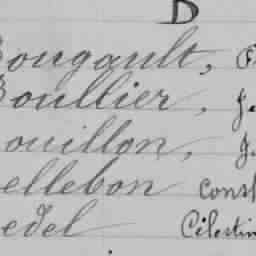 D
Bougault,
Boullier, J.
ouillon, J.
ellebon Const
edel Célestin